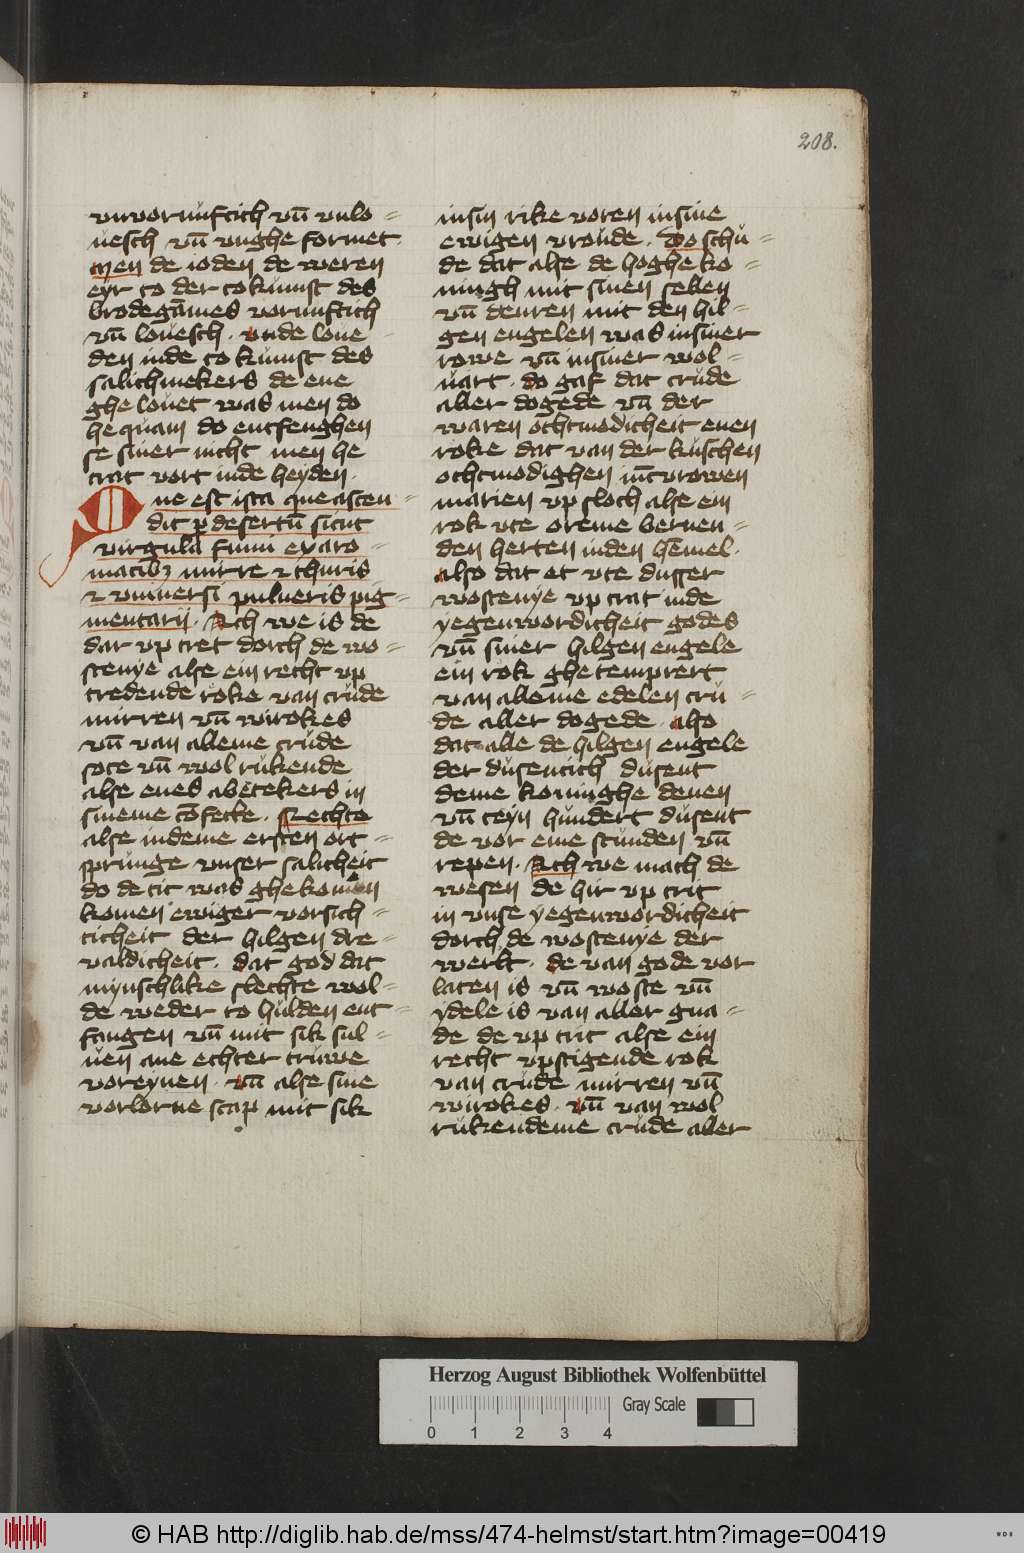 208.
vnvornuftich vn̄ vnlo=
uesch vn̄ vnghe formet.
Men de ioden de weren
eyr to der tokumst des
brodegāmes vornuftich
vn̄ louesch. vnde loue
den inde to kumst des
salichmekers de ene
ghe louet was men do
he quam do entfenghen
se siner nicht men he
trat vort inde heyden.
Que est ista que ascen=
dit p desertū sicut
virgula fumi ex aro=
matibꝫ mirre ⁊ thuris
⁊ vniuersi pulueris pig=
mentarij. Ach we is de
dar vp tret dorch de wo=
stenye alse ein recht vp
tredende roke van crude
mirren vn̄ wirokes
vn̄ van alleme crude
sote vn̄ wol rukende
alse enes abetekers in
sineme cōfecte. Rechte
alse indeme ersten ort=
sprunge vnser salicheit
do de tit was ghe komen
komen ewiger vorsich=
ticheit der hilgen dre=
valdicheit. dat god dat
mynschlike slechte wol=
de weder to hulden ent=
fangen vn̄ mit sik sul=
uen ane echter truwe
voreynen. vn̄ alse sine
vorlorne scap mit sik
insin rike voren insine
ewigen vroude. Do schu=
de dat alse de hoghe ko=
ningh mit sinen seben
vn̄ deuren mit den hil=
gen engelen was insiner
rowe vn̄ insiner wol=
uart. do gaf dat crude
aller dogede vn̄ der
waren othmodicheit enen
roke dat van der kuschen
othmodighen iūcvrowen
marien vp floch alse ein
rok vte oreme bernen=
den herten inden hēmel.
also dat et vte dusser
wostenye vp trat inde
yegenwordicheit godes
vn̄ siner hilgen engele
ein rok ghetemprert
van alleme edelen cru=
de aller dogede. also
dat alle de hilgen engele
der dusentich dusent
deme koninghe denen
vn̄ teyn hundert dusent
de vor eme stunden vn̄
repen. Ach we mach de
wesen de hir vp trit
in vnse yegenwordicheit
dorch de wostenye der
werlt. de van gode vor
laten is vn̄ woste vn̄
ydele is van aller gna=
de de vp trit alse ein
recht vpstigende rok
van crude mirren vn̄
wirokes. vn̄ van wol
rukendeme crude aller
Herzog August Bibliothek Wolfenbüttel
Gray Scale
0 1 2 3 4
© HAB http://diglib.hab.de/mss/474-helmst/start.htm?image=00419